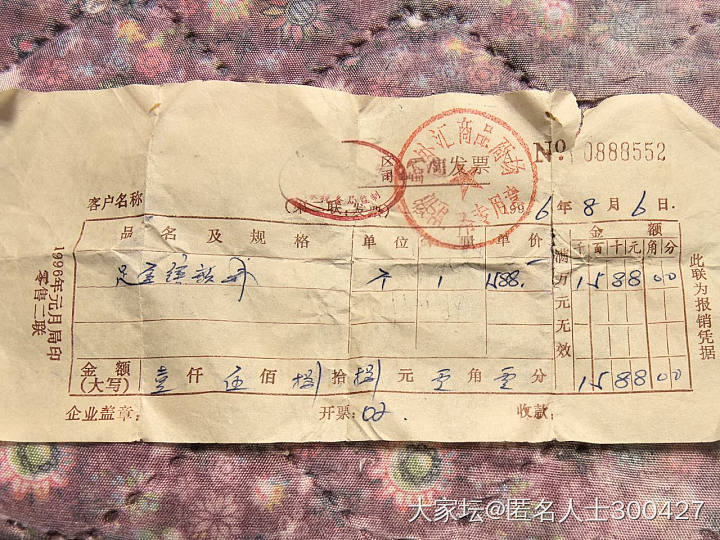 外汇商品商场
发票
专用章
No. 0888552
客户名称
(第一联:发票)
1996年8月6日
品名及规格 单位 数量 单价 金额
千百十元角分
足金 个 1 1588.- 158800
满万元无效
金额(大写) 壹仟伍佰捌拾捌元零角零分 158800
企业盖章: 开票:02. 收款:
1996年元月局印
零售二联
此联为报销凭据
大家坛@匿名人士300427